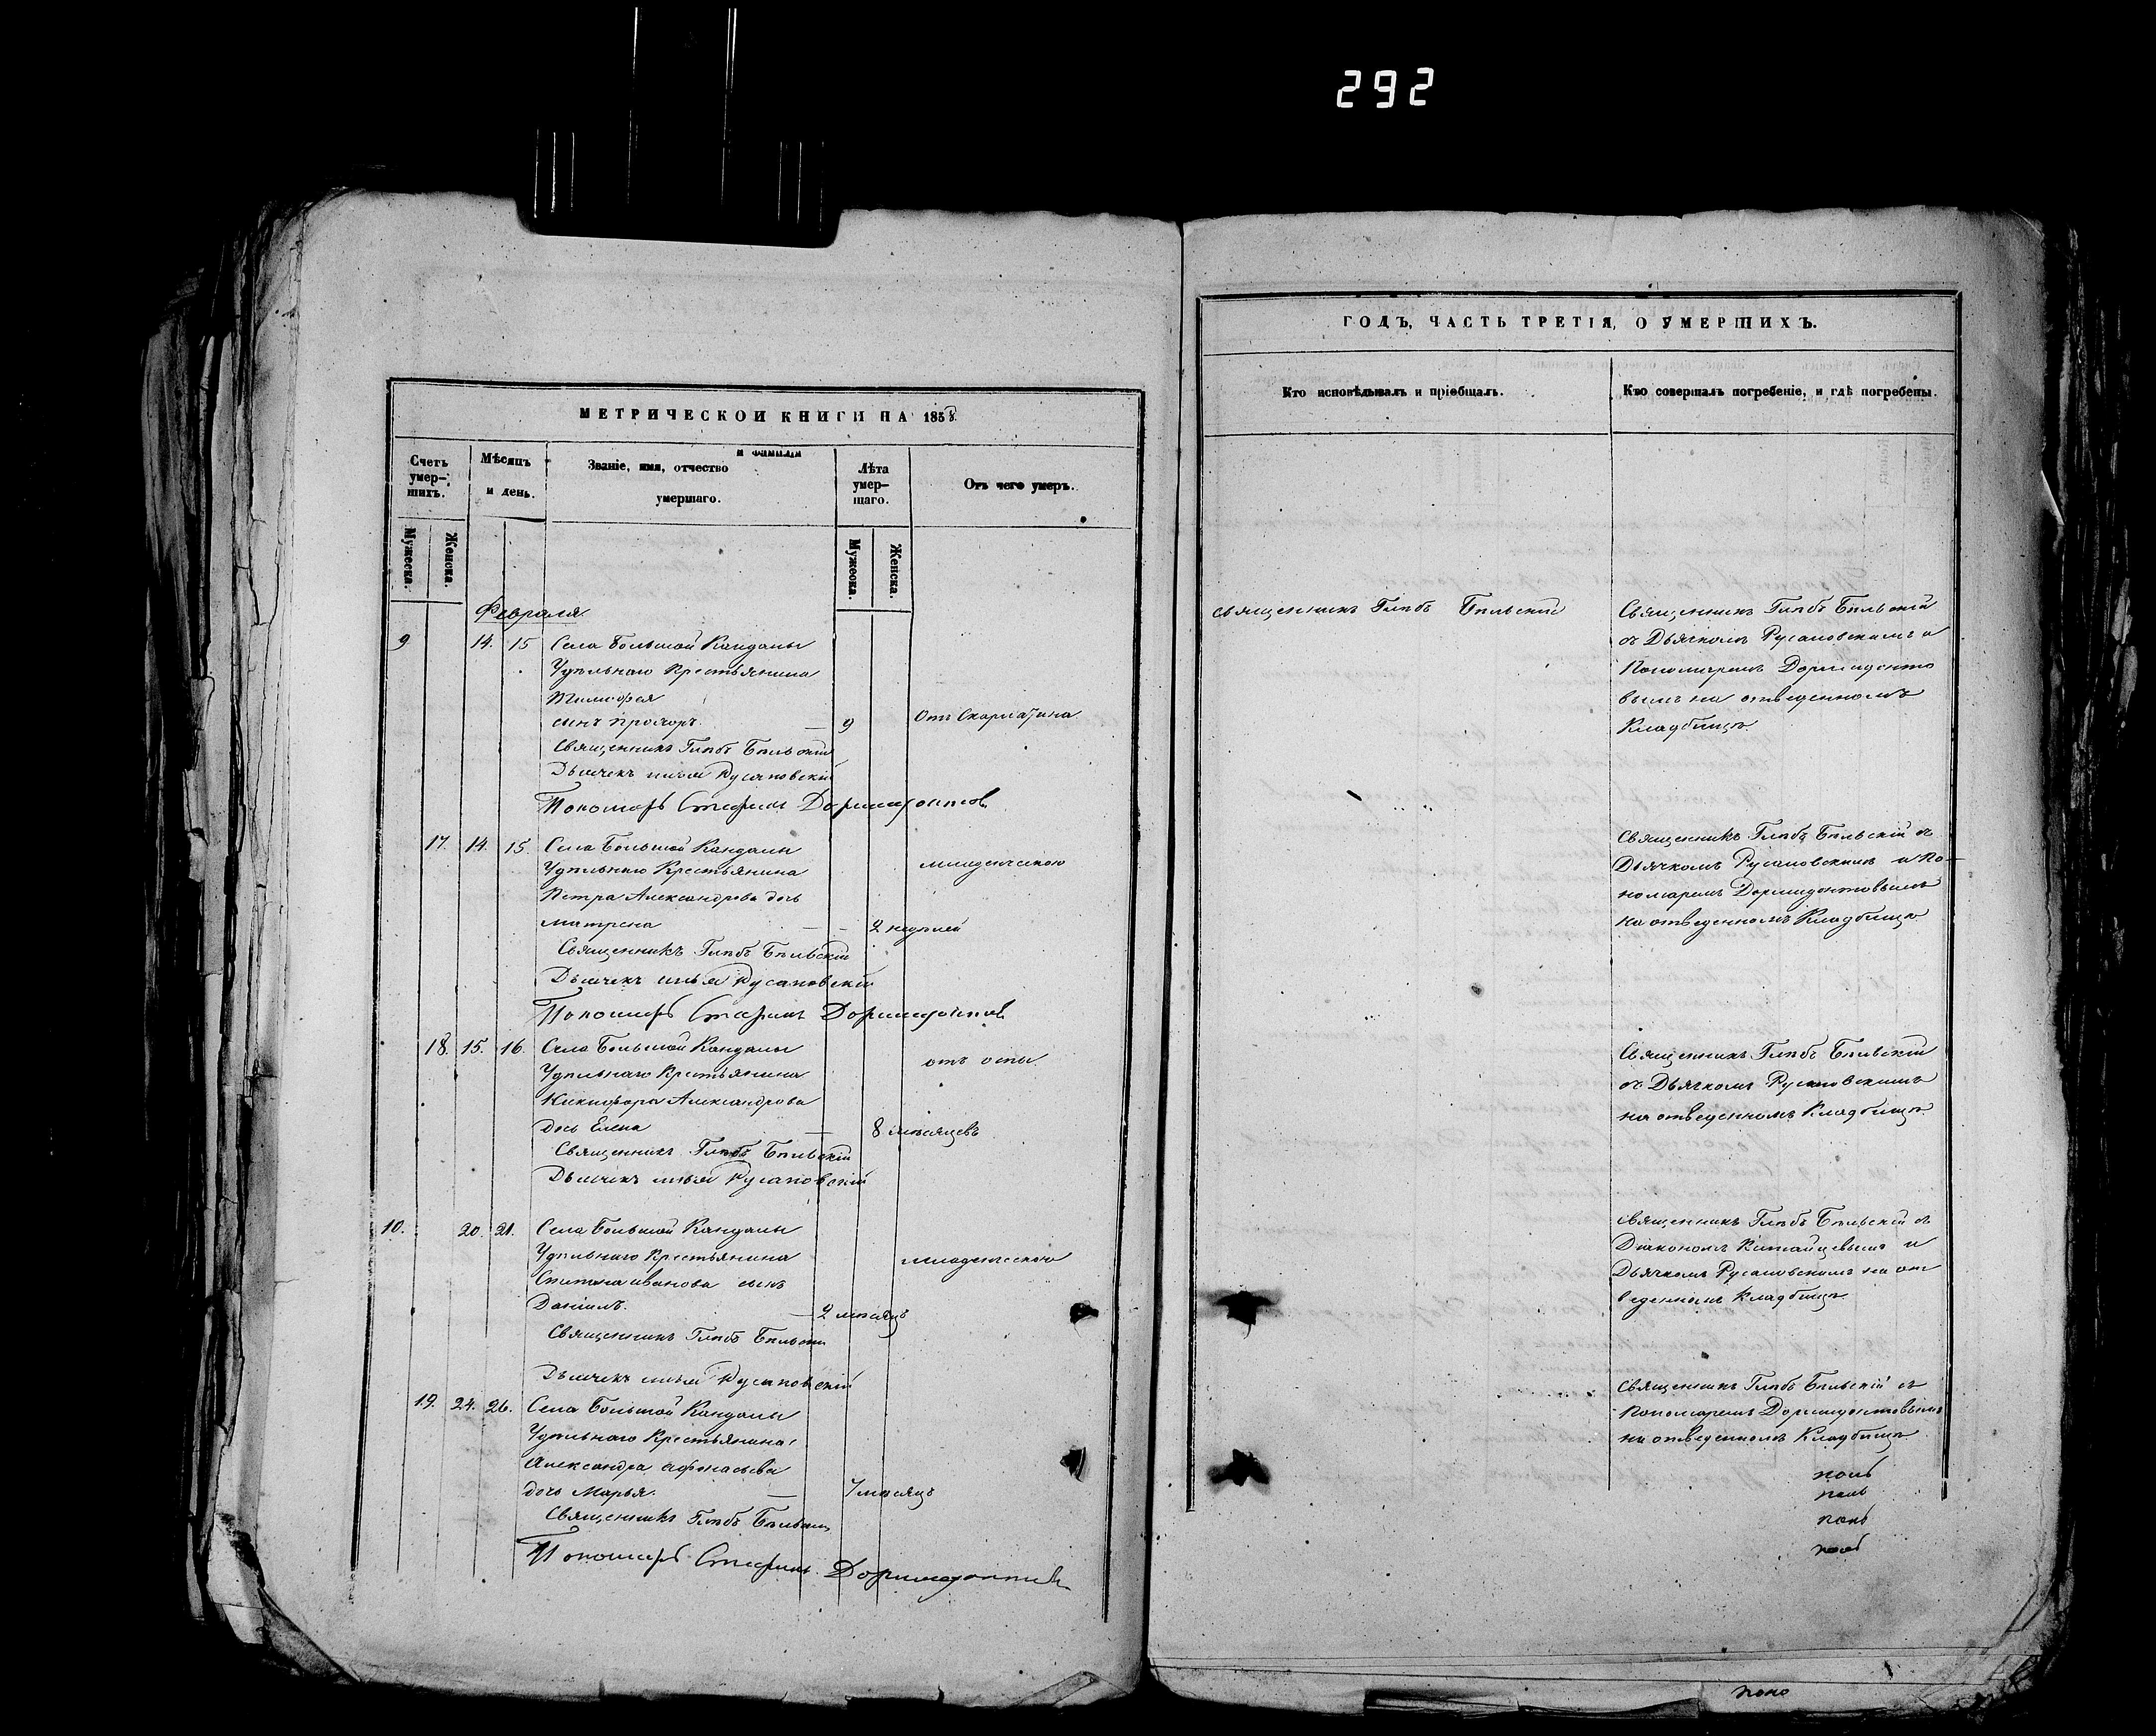 292
МЕТРИЧЕСКОЙ КНИГИ НА 1858
Счетъ умер-шихъ.
Мѣсяцъ и день.
Званіе, имя, отчество и фамилія умершаго.
Лѣта умер-шаго.
Отъ чего умеръ.
Мужеска.
Женска.
Мужеска.
Женска.
Февраля
9 14. 15 Села Большой Кандалы
Удѣльнаго Крестьянина
Тимофея
сынъ Прохоръ. — 9 Отъ Скарлатина
Священникъ Глѣбъ Бѣльскій
Дьячекъ Илья Русановскій
Пономарь Стефанъ Доримедонтовъ
17. 14. 15. Села Большой Кандалы
Удѣльнаго Крестьянина младенческою
Петра Александрова дочь
Матрена — 2 недѣлей
Священникъ Глѣбъ Бѣльскій
Дьячекъ Илья Русановскій
Пономарь Стефанъ Доримедонтовъ
18. 15. 16. Села Большой Кандалы
Удѣльнаго Крестьянина отъ оспы
Никифора Александрова
дочь Елена — 8 мѣсяцевъ
Священникъ Глѣбъ Бѣльскій
Дьячекъ Илья Русановскій
10. 20. 21. Села Большой Кандалы
Удѣльнаго Крестьянина младенческою
Иванова сынъ
Даніилъ. — 2 мѣсяцъ
Священникъ Глѣбъ Бѣльскій
Дьячекъ Илья Русановскій
19. 24. 26. Села Большой Кандалы
Удѣльнаго Крестьянина
Александра Афонасьева
дочь Марья. — 7 мѣсяцъ
Священникъ Глѣбъ Бѣльскій
Пономарь Стефанъ Доримедонтовъ
ГОДЪ, ЧАСТЬ ТРЕТІЯ, О УМЕРШИХЪ.
Кто исповѣдывалъ и пріобщалъ.
Кто совершалъ погребеніе, и гдѣ погребены.
Священникъ Глѣбъ Бѣльскій
Священникъ Глѣбъ Бѣльскій
съ Дьячкомъ Русановскимъ и
Пономаремъ Дормидонто
вымъ на отведенномъ
Кладбищѣ.
Священникъ Глѣбъ Бѣльскій съ
Дьячкомъ Русановскимъ и По-
номаремъ Дормидонтовымъ
на отведенномъ Кладбищѣ
Священникъ Глѣбъ Бѣльскій
съ Дьячкомъ Русановскимъ
на отведенномъ Кладбищѣ.
Священникъ Глѣбъ Бѣльскій съ
Діакономъ Китайцевымъ и
Дьячкомъ Русановскимъ на от
веденномъ Кладбищѣ
Священникъ Глѣбъ Бѣльскій съ
Пономаремъ Дормидонтовымъ
на отведенномъ Кладбищѣ.